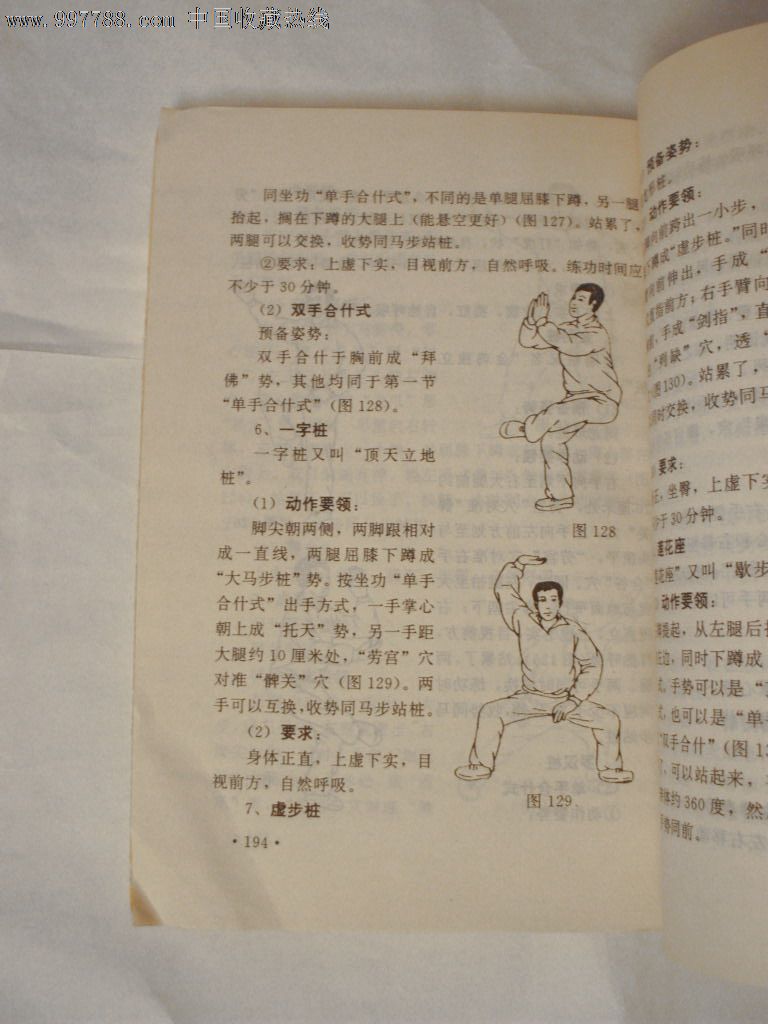 www.997788.com 中国收藏热线
同坐功“单手合什式”，不同的是单腿屈膝下蹲，另一腿
抬起，搁在下蹲的大腿上（能悬空更好）（图127）。站累了，
两腿可以交换，收势同马步站桩。
②要求：上虚下实，目视前方，自然呼吸。练功时间应
不少于30分钟。
（2）双手合什式
预备姿势：
双手合什于胸前成“拜
佛”势，其他均同于第一节
“单手合什式”（图128）。
6、一字桩
一字桩又叫“顶天立地
桩”。
（1）动作要领：
脚尖朝两侧，两脚跟相对
成一直线，两腿屈膝下蹲成
“大马步桩”势。按坐功“单手
合什式”出手方式，一手掌心
朝上成“托天”势，另一手距
大腿约10厘米处，“劳宫”穴
对准“髀关”穴（图129）。两
手可以互换，收势同马步站桩。
（2）要求：
身体正直，上虚下实，目
视前方，自然呼吸。
7、虚步桩
图128
图129
·194·
预备姿势：
桩。
动作要领：
向前跨出一小步，
下蹲成“虚步桩。”同时
向前伸出，手成“
指前方；右手臂向
，手成“剑指”，直
“缺”穴，透“
图130）。站累了，
时交换，收势同马
要求：
，坐臀，上虚下实
少于30分钟。
莲花座
花座”又叫“歇步
动作要领：
提起，从左腿后
边，同时下蹲成
式，手势可以是“
式，也可以是“单手
“双手合什”（图13
，可以站起来，
约360度，然
势同前。